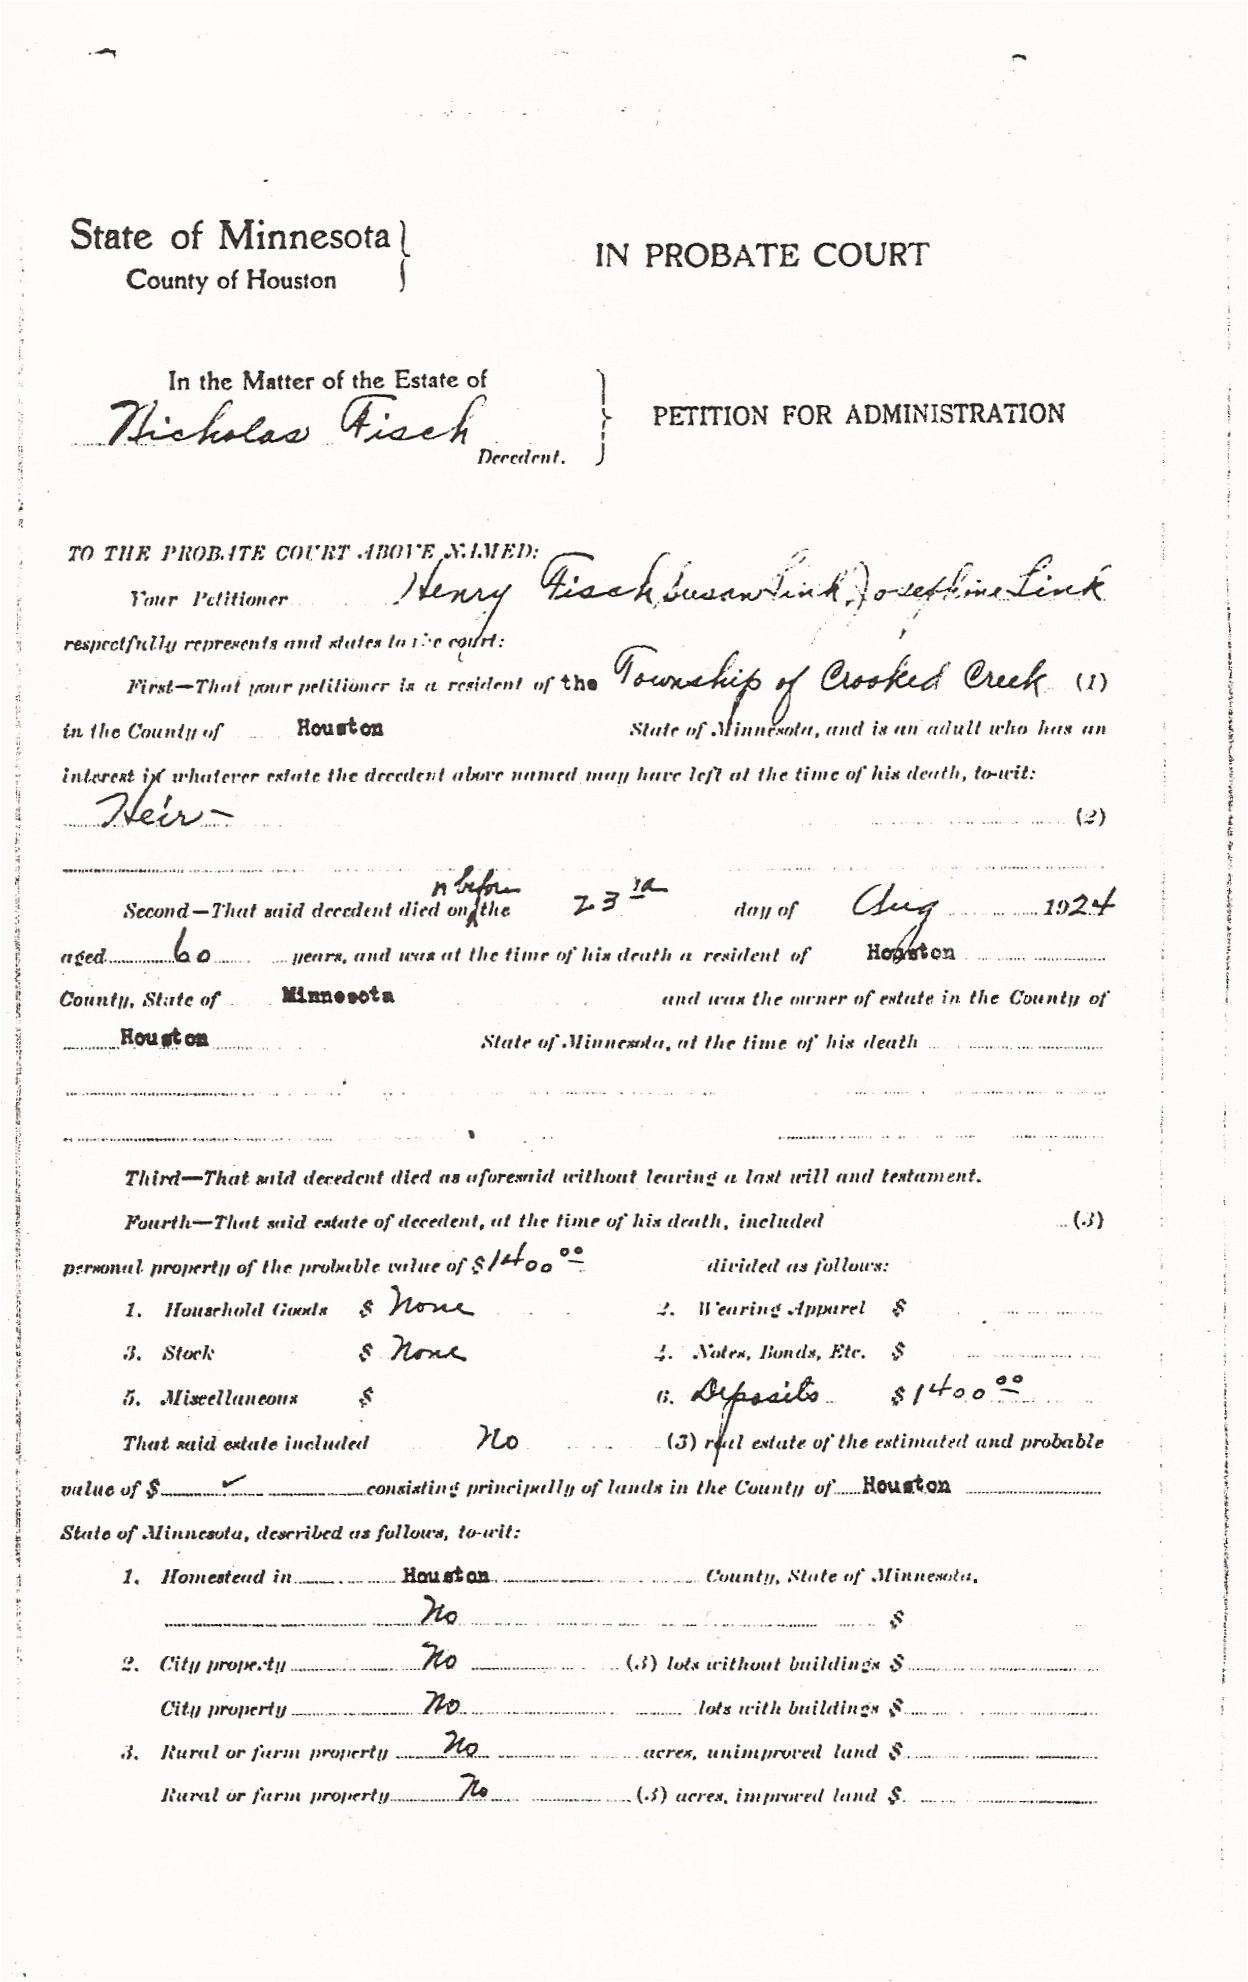 State of Minnesota
County of Houston
IN PROBATE COURT
In the Matter of the Estate of
Nicholas Fisch
Decedent.
PETITION FOR ADMINISTRATION
TO THE PROBATE COURT ABOVE NAMED:
Your Petitioner Henry Fisch, Susan Link, Josephine Link
respectfully represents and states to the court:
First—That your petitioner is a resident of the Township of Crooked Creek (1)
in the County of Houston State of Minnesota, and is an adult who has an
interest in whatever estate the decedent above named may have left at the time of his death, to-wit:
Heir - (2)
r before
Second—That said decedent died on the 23rd day of Aug 1924
aged 60 years, and was at the time of his death a resident of Houston
County, State of Minnesota and was the owner of estate in the County of
Houston State of Minnesota, at the time of his death
Third—That said decedent died as aforesaid without leaving a last will and testament.
Fourth—That said estate of decedent, at the time of his death, included (3)
personal property of the probable value of $1400 00 divided as follows:
1. Household Goods $ None 2. Wearing Apparel $
3. Stock $ None 4. Notes, Bonds, Etc. $
5. Miscellaneous $ 6. Deposits $1400 00
That said estate included No (3) real estate of the estimated and probable
value of $ ✓ consisting principally of lands in the County of Houston
State of Minnesota, described as follows, to-wit:
1. Homestead in Houston County, State of Minnesota.
No $
2. City property No (3) lots without buildings $
City property No lots with buildings $
3. Rural or farm property No acres, unimproved land $
Rural or farm property No (3) acres, improved land $